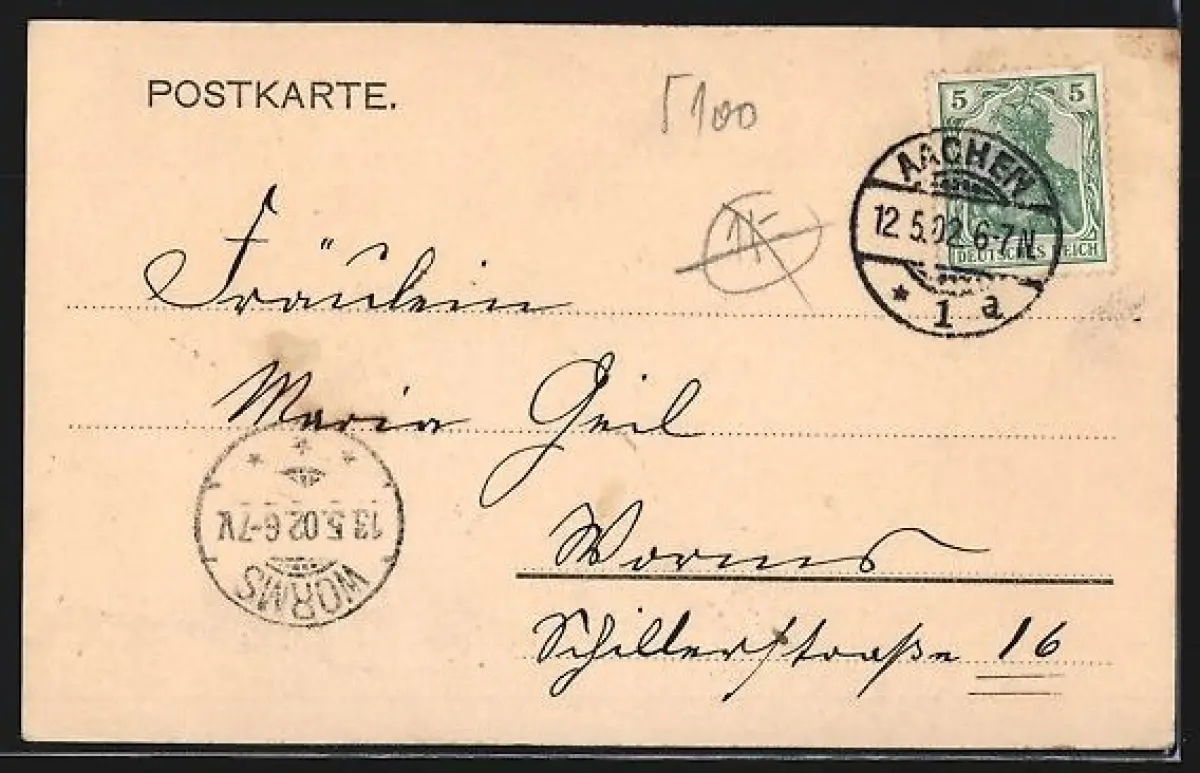 POSTKARTE.
5100
5 5
DEUTSCHES REICH
AACHEN
12.5.02 6-7N
* 1 a
Fräulein
Maria Geil
Worms
Schillerstraße 16
WORMS
13.5.02 6-7V.